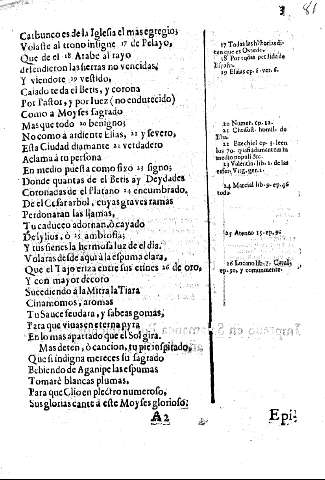 3 81
Carbunco es de la Iglesia el mas egregio;
Volaste al trono insigne 17 de Pelayo,
Que de el 18 Arabe al rayo
defendieron las sierras no vencidas,
Y viendote 19 vestido,
Caiado te da el Betis, y corona
Por Pastor, y por luez (no endurecido)
Como a Moyses sagrado
Mas que todo 20 benigno;
No como à ardiente Elias, 21 y severo,
Esta Ciudad diamante 22 verdadero
Aclama à tu persona
En medio puesta como fixo 23 signo;
Donde quantas de el Betis ay Deydades
Coronadas de el Platano 24 encumbrado,
De el Cesar arbol, cuyas graves ramas
Perdonaran las llamas,
Tu caduceo adornan, ò cayado
De lylius, ò 25 ambrosia;
Y tus sienes la hermosa luz de el dia.
Volaras desde aqui à la espuma clara,
Que el Tajo eriza entre sus crines 26 de oro,
Y con mayor decoro
Sucediendo à la Mitra la Tiara
Cinamomos, aromas
Tu Sauce feudara, y sabeas gomas,
Para que vivas en eterna pyra
En lo mas apartado que el Sol gira.
Mas deten, ò cancion, tu pie inspirado,
Que si indigna mereces su sagrado
Bebiendo de Aganipe las espumas
Tomarè blancas plumas,
Para que Clio en plectro numeroso,
Sus glorias cante à este Moyses glorioso;
A2
Epi-
17 Todas las historias di-
zen que es Oviedo.
18 Por aver perdido de
España.
19 Elias ep. 6. ver. 6.
20 Numer. ep. 12.
21 Chrisost. homil. de
Elia.
22 Ezechiel ep. 3.
23 Valentin. lib. 1. de las
24 Marcial lib. 9. ep. 96
toda.
25 Ateneo 15. ep. 9.
26 Lucano lib. 7.
ep. 30, y comunmente.